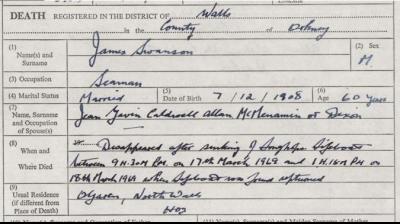 DEATH REGISTERED IN THE DISTRICT OF Walls
in the County of Orkney
(1) Name(s) and Surname James Swanson (2) Sex M.
(3) Occupation Seaman
(4) Marital Status Married (5) Date of Birth 7/12/1908 (6) Age 60 years
(7) Name, Surname and Occupation of Spouse(s) Jean Gavin Caldwell Allan McMenamin or Dixon
(8) When and Where Died Disappeared after sinking of Longhope Lifeboat
between 9H.30M P.M. on 17th March 1969 and 1H.16M P.M. on
18th March 1969 when Lifeboat was found capsized
(9) Usual Residence (if different from Place of Death) North Walls
Hoy